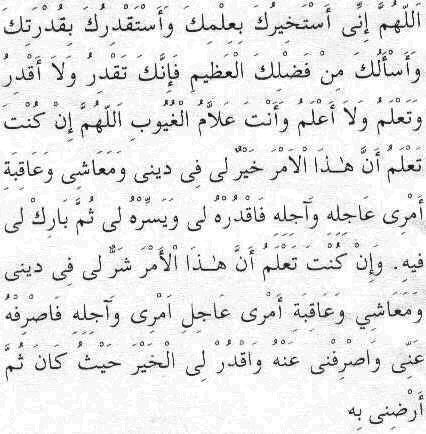 اَللّٰهُمَّ إِنِّى أَسْتَخِيرُكَ بِعِلْمِكَ وَأَسْتَقْدِرُكَ بِقُدْرَتِكَ
وَأَسْأَلُكَ مِنْ فَضْلِكَ الْعَظِيمِ فَإِنَّكَ تَقْدِرُ وَلَا أَقْدِرُ
وَتَعْلَمُ وَلَا أَعْلَمُ وَأَنْتَ عَلاَّمُ الْغُيُوبِ اَللّٰهُمَّ إِنْ كُنْتَ
تَعْلَمُ أَنَّ هٰذَا الْاَمْرَ خَيْرٌ لِى فِى دِينِى وَمَعَاشِى وَعَاقِبَةِ
أَمْرِى عَاجِلِهِ وَآجِلِهِ فَاقْدُرْهُ لِى وَيَسِّرْهُ لِى ثُمَّ بَارِكْ لِى
فِيهِ. وَإِنْ كُنْتَ تَعْلَمُ أَنَّ هٰذَا الْأَمْرَ شَرٌّ لِى فِى دِينِى
وَمَعَاشِي وَعَاقِبَةِ أَمْرِى عَاجِلِ اَمْرِى وَآجِلِهِ فَاصْرِفْهُ
عَنِّى وَاصْرِفْنِى عَنْهُ وَاقْدُرْ لِىَ الْخَيْرَ حَيْثُ كَانَ ثُمَّ
أَرْضِنِى بِهِ